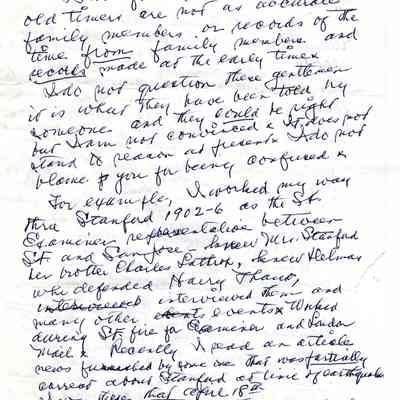 old timers are not as accurate
family members or records of the
time from family members and
records made at the early times
I do not question these gentlemen
it is what they have been told by
someone and they could be right
but I am not convinced x It does not
stand to reason at present x I do not
blame you for being confused x
For example, I worked my way
thru Stanford 1902-6 as the S.F.
Examiner representative between
SF and San Jose - knew Mrs. Stanford
her brother Charles Lathrop, knew Delmas
who defended Harry Thaw,
interviewed interviewed them and
many other events x Worked
during S.F. fire for Examiner and London
Mail x Recently I read an article
news furnished by some one that was partially
correct about Stanford at time of earthquake
that April 18th